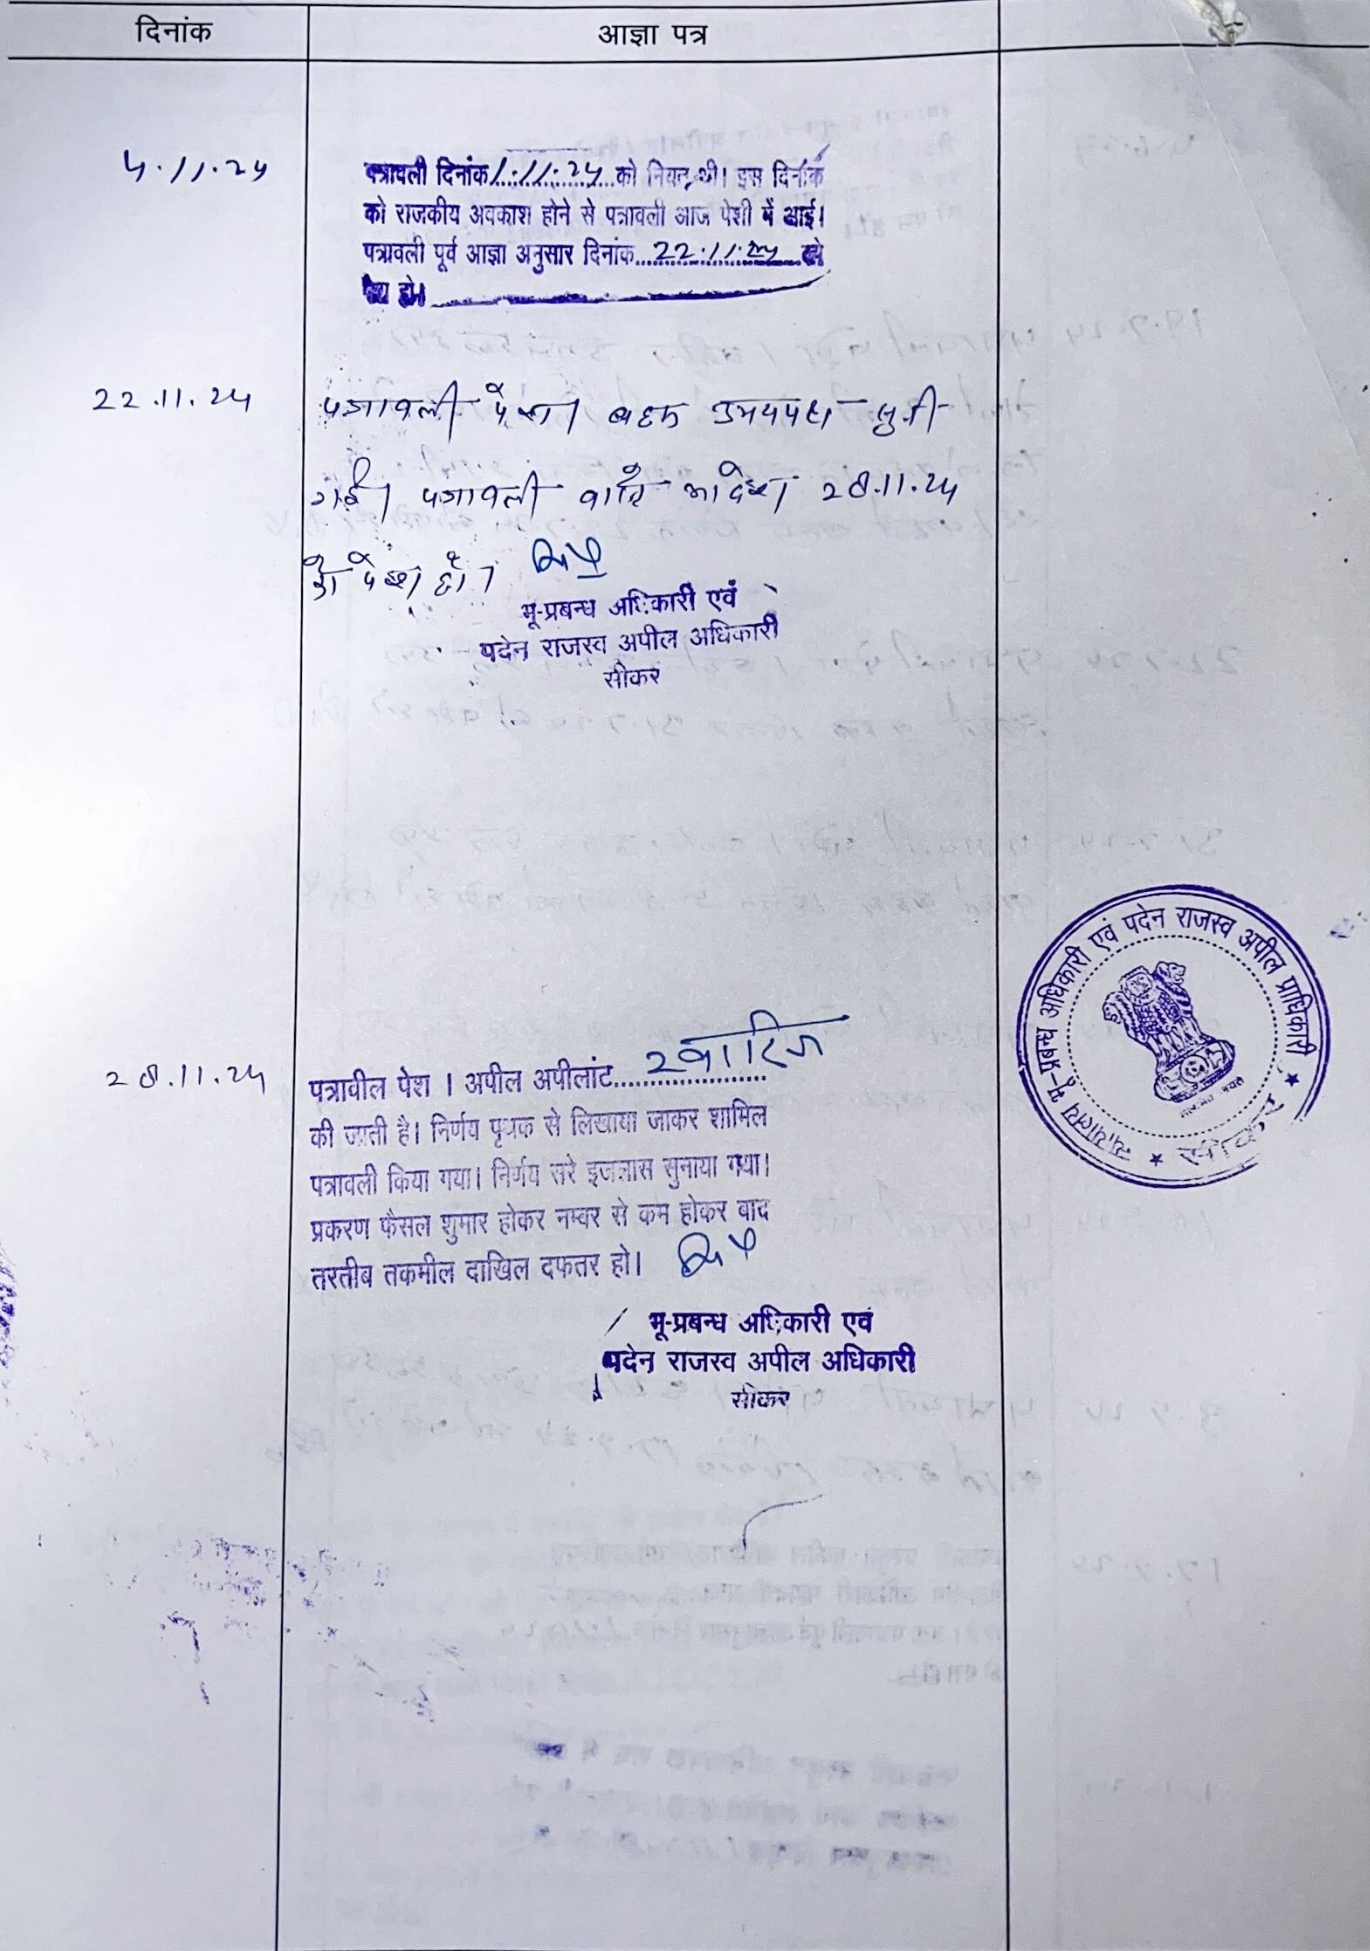 दिनांक
आज्ञा पत्र
4.11.24
पत्रावली दिनांक 1.11.24 को नियत थी। इस दिनांक
को राजकीय अवकाश होने से पत्रावली आज पेशी में आई।
पत्रावली पूर्व आज्ञा अनुसार दिनांक 22.11.24 को
पेश हो।
22.11.24
पत्रावली पेश। बहस उभयपक्ष सुनी
गई। पत्रावली वास्ते आदेश 28.11.24
को पेश हो।
भू-प्रबन्ध अधिकारी एवं
पदेन राजस्व अपील अधिकारी
सीकर
न्यायालय भू-प्रबन्ध अधिकारी एवं पदेन राजस्व अपील प्राधिकारी
सीकर
28.11.24
पत्रावील पेश । अपील अपीलांट खारिज
की जाती है। निर्णय पृथक से लिखाया जाकर शामिल
पत्रावली किया गया। निर्णय सरे इजलास सुनाया गया।
प्रकरण फैसल शुमार होकर नम्बर से कम होकर बाद
तरतीब तकमील दाखिल दफतर हो।
भू-प्रबन्ध अधिकारी एवं
पदेन राजस्व अपील अधिकारी
सीकर